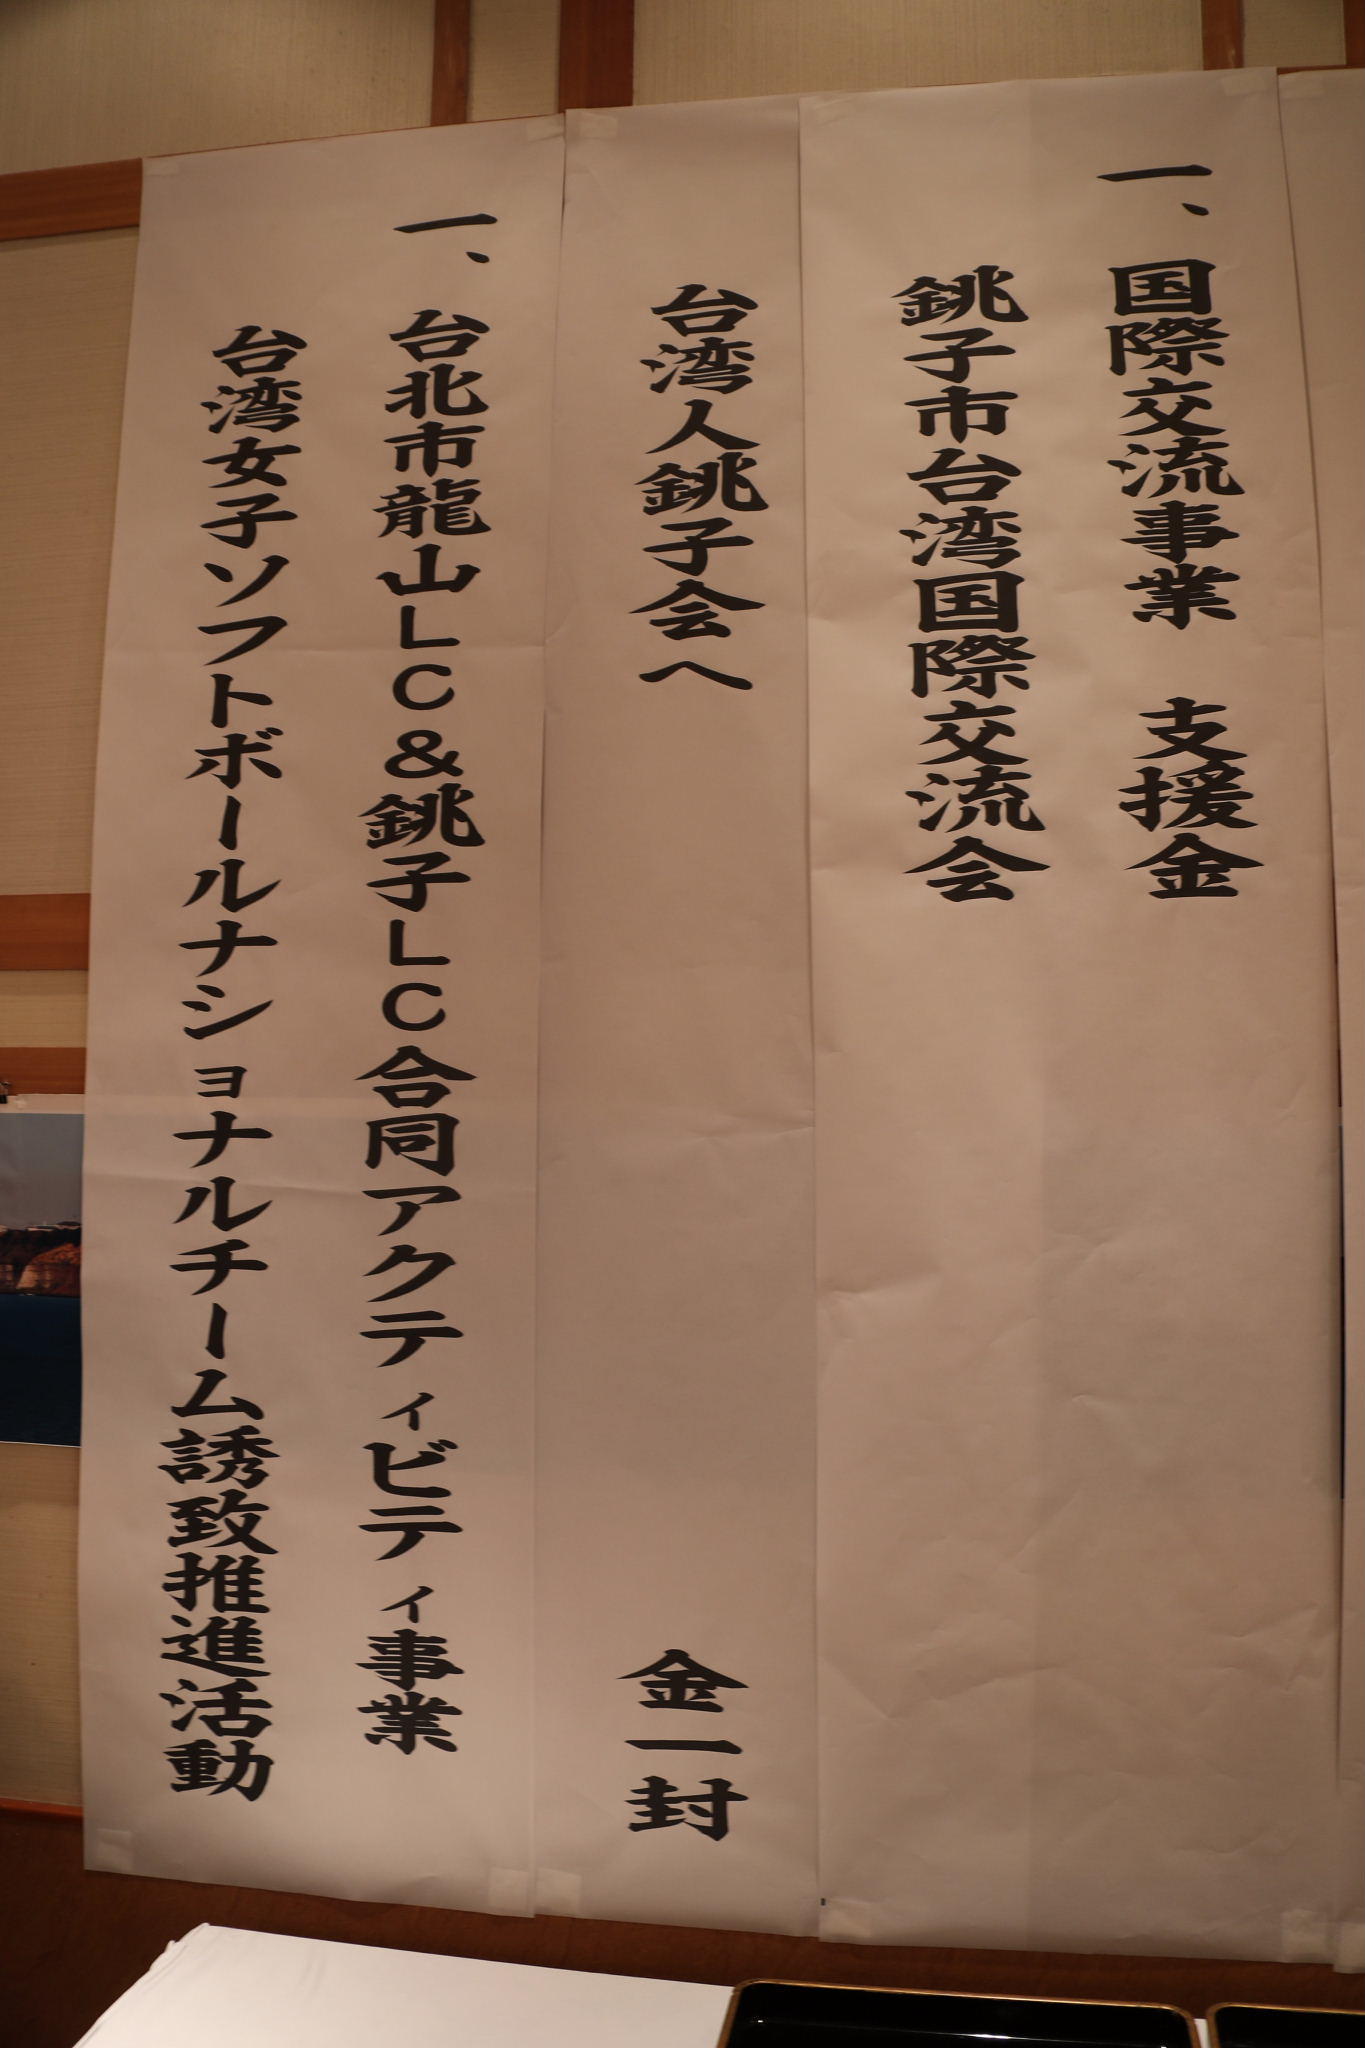 一、国際交流事業　支援金
銚子市台湾国際交流会
台湾人銚子会へ　金一封
一、台北市龍山LC&銚子LC合同アクティビティ事業
台湾女子ソフトボールナショナルチーム誘致推進活動